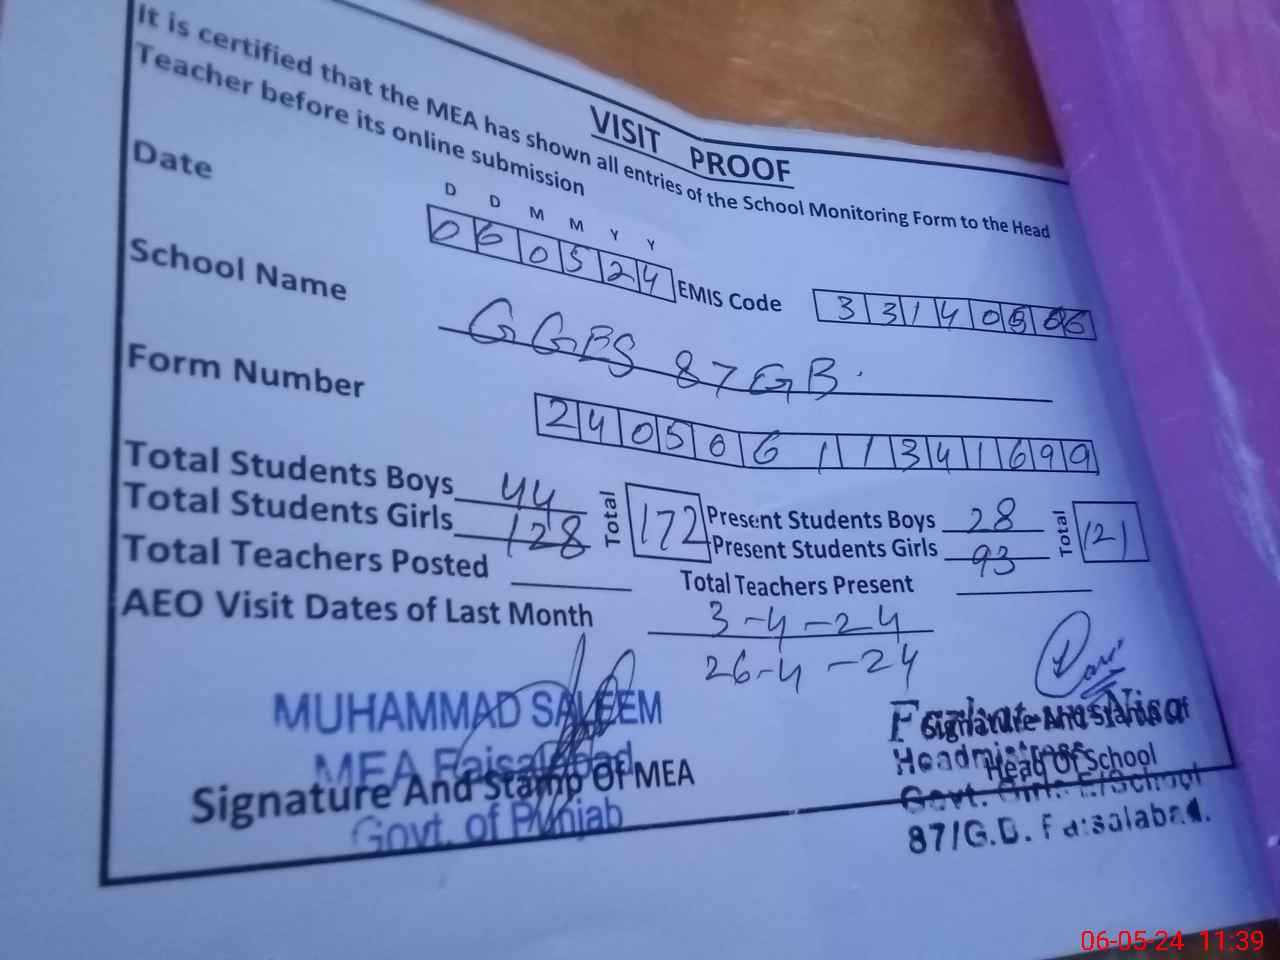 VISIT PROOF
It is certified that the MEA has shown all entries of the School Monitoring Form to the Head
Teacher before its online submission
D D M M Y Y
Date 060524 EMIS Code 331405
School Name GGES 87GB.
Form Number 24050611341699
Total Students Boys 44 Total 172 Present Students Boys 28 Total 121
Total Students Girls 128 Present Students Girls 93
Total Teachers Posted Total Teachers Present
AEO Visit Dates of Last Month 3-4-24
26-4-24
MUHAMMAD SALEEM
MEA Faisalabad
Signature And Stamp Of MEA
Govt. of Punjab
Signature And Stamp Of
Headmistress
Head Of School
Govt. Girls E/School
87/G.B. Faisalabad.
06-05-24 11:39